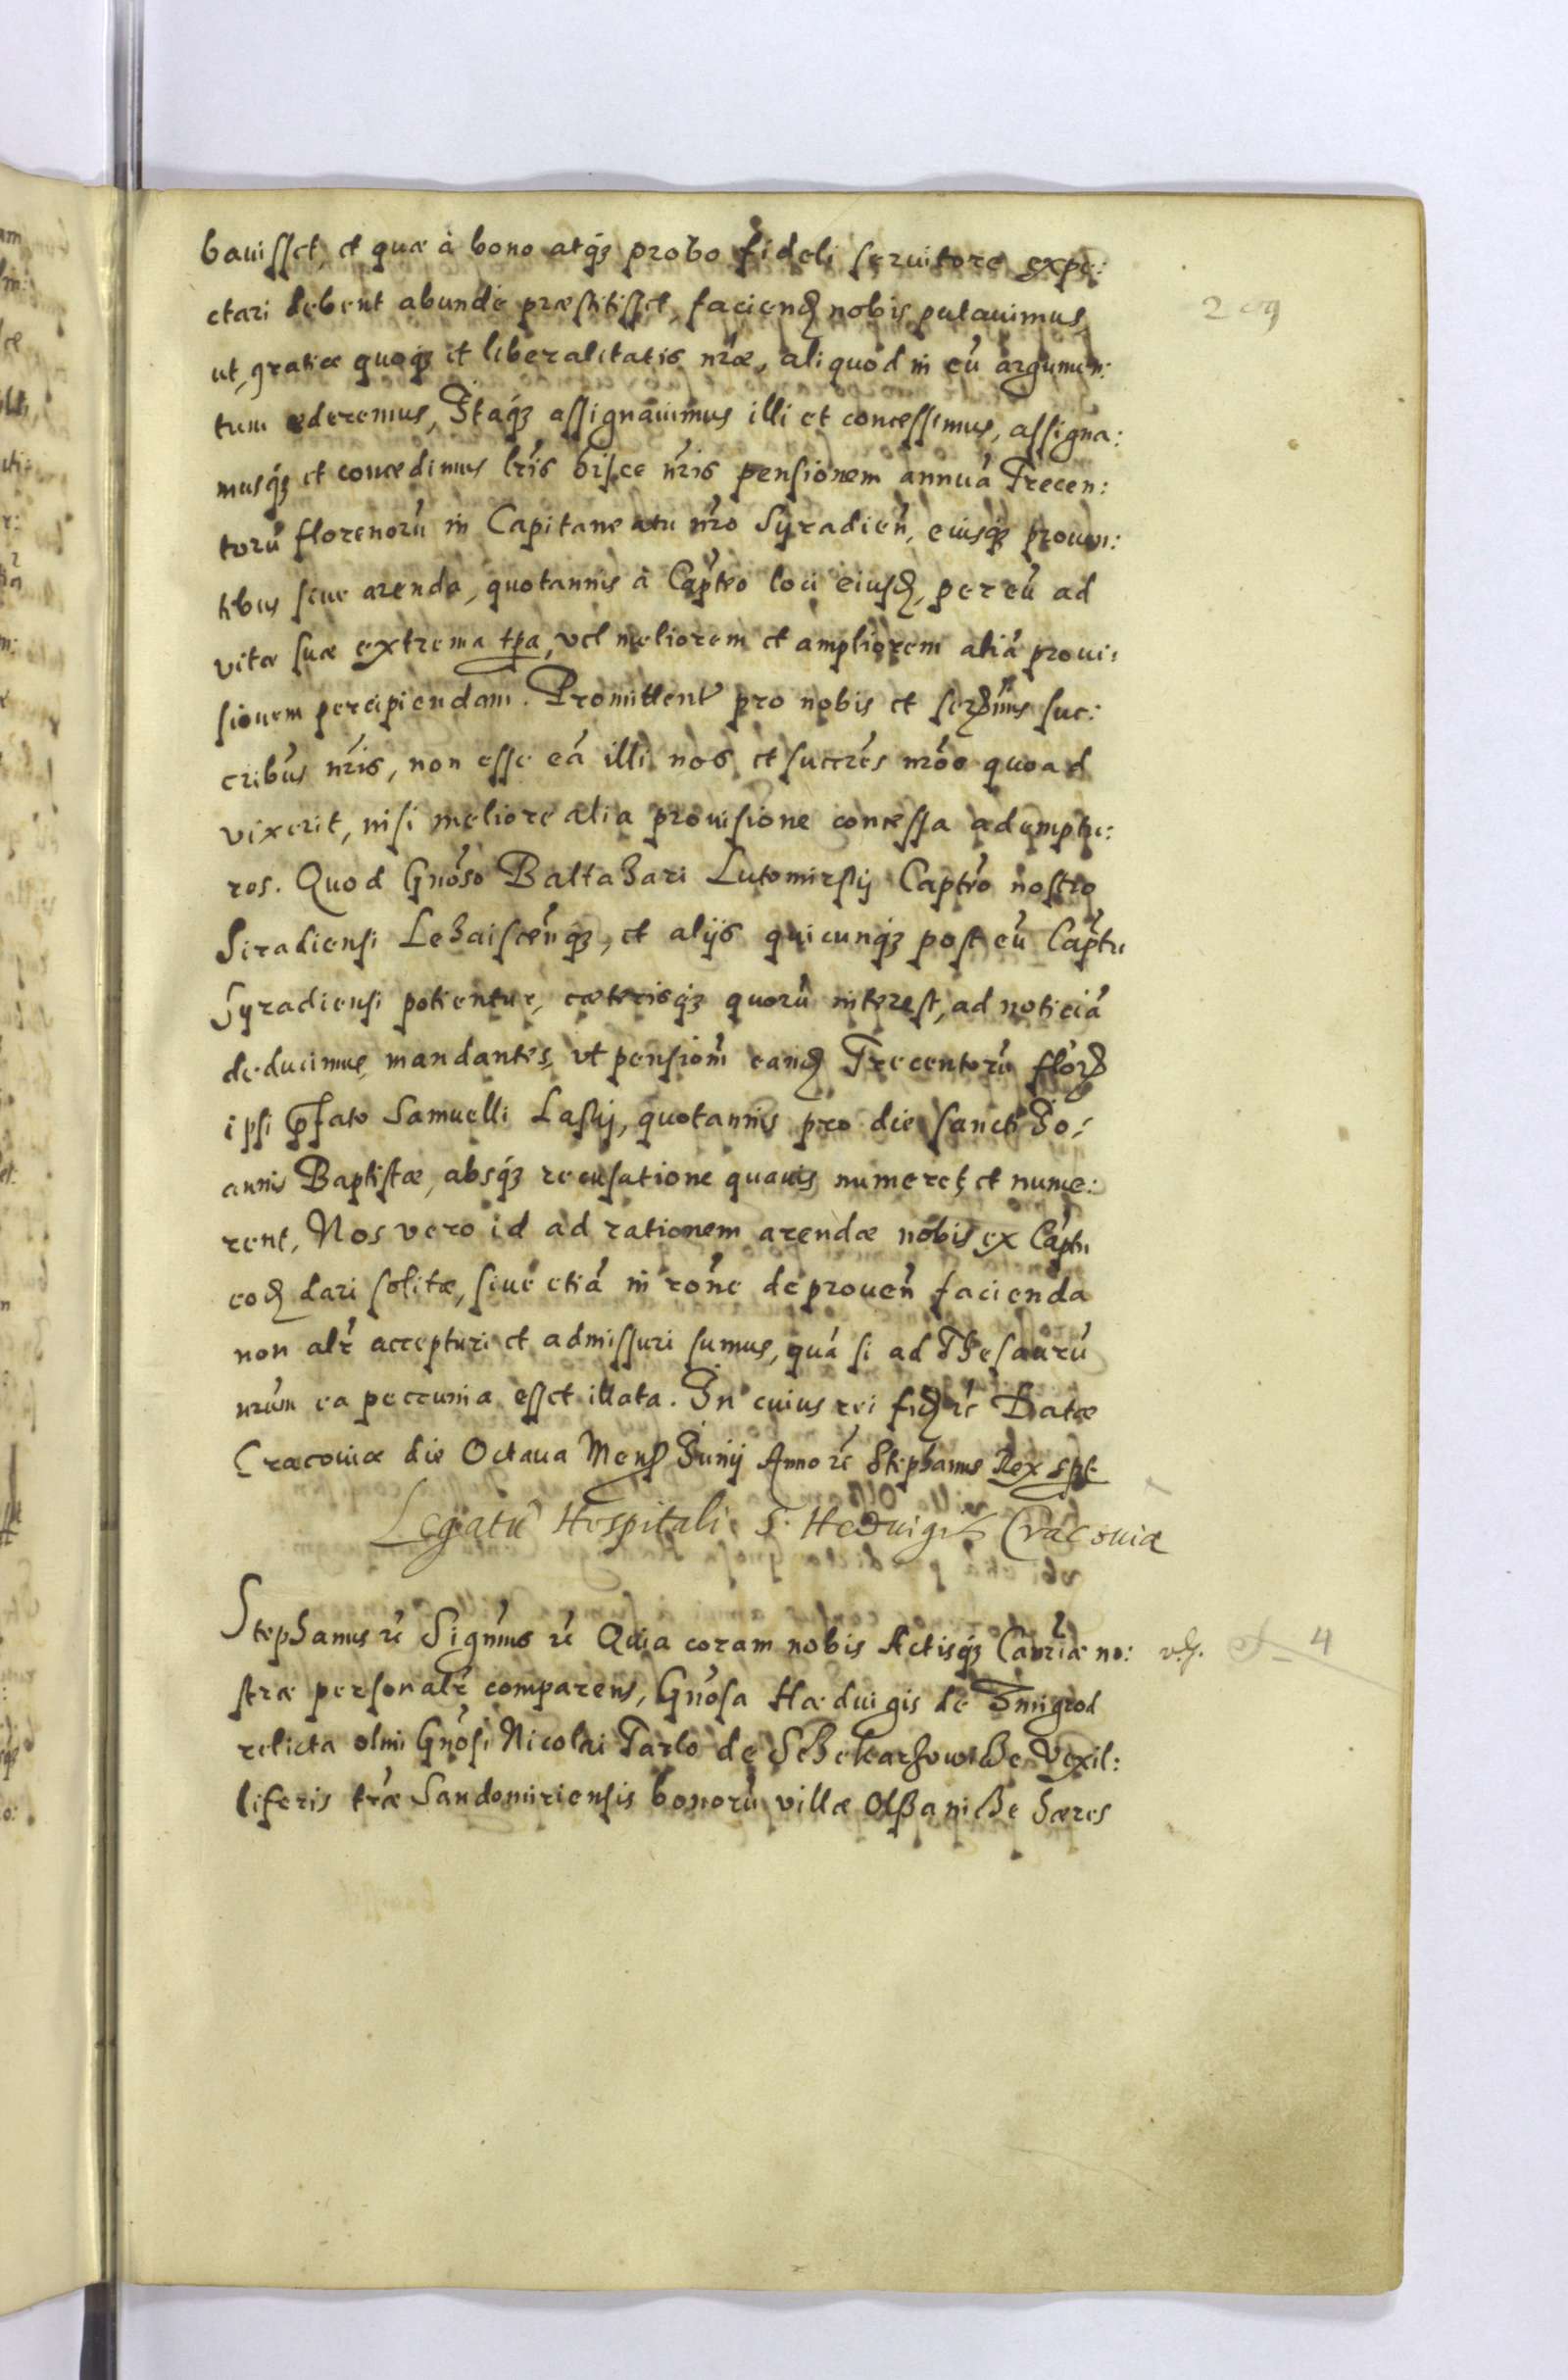 bauisset, et quæ à bono atq3 probo fideli seruitore expe:
ctari debent abundè præstitisset, faciend nobis putauimus,
ut, gratiæ quoq3 et liberalitatis nræ, aliquod in eū argumen:
tum ederemus, Itaq3 assignauimus illi et concessimus, assigna:
musq3 et concedimus lris hisce nris pensionem annuā Trecen:
torū florenorū in Capitaneatu nro Syradien, eiusq3 prouen:
tibus siue arenda, quotannis à Captro loci eiusd, per eū ad
vitæ suæ extrema tpa, vel meliorem et ampliorem aliā proui:
sionem percipiendam. Promittent pro nobis et serēmis suc:
cribus nris, non esse eā illi nos et succres nros quoad
vixerit, nisi meliore alia prouisione concessa adempte:
ros. Quod Gnoso Balthasari Lutomirsky Captro nostro
Siradiensi Lezaiscenq3, et alijs quicunq3 post eū Captu
Syradiensi potientur, cæterisq3 quorū interest, ad noticiā
deducimus, mandantes, vt pensiom eand Trecentorū flor
ipsi pfato Samuelli Lasky, quotannis pro die sancti Io:
annis Baptistæ, absq3 recusatione quauis numeret et nume:
rent, Nos vero id ad rationem arendæ nobis ex Captu
eod dari solitæ, siue etiā in rone de prouen facienda
non alr accepturi et admissuri sumus, quā si ad Thesaurū
nrum ea peccunia esset illata. In cuius rei fid rc Datæ
Cracouiæ die Octaua Mens Iunij Anno rc Stephanus Rex spt
Legatū Hospitali S. Heduigis Cracouiæ
Stephanus rc Signmus rc Quia coram nobis Actisq3 Canriæ no:
stræ personalr comparens, Gnosa Hæduigis de Zmigrod
relicta olim Gnosi Nicolai Tarlo de Sczekarzowicze Vexil:
liferis træ Sandomiriensis bonorū villæ Olszanicze hæres
4